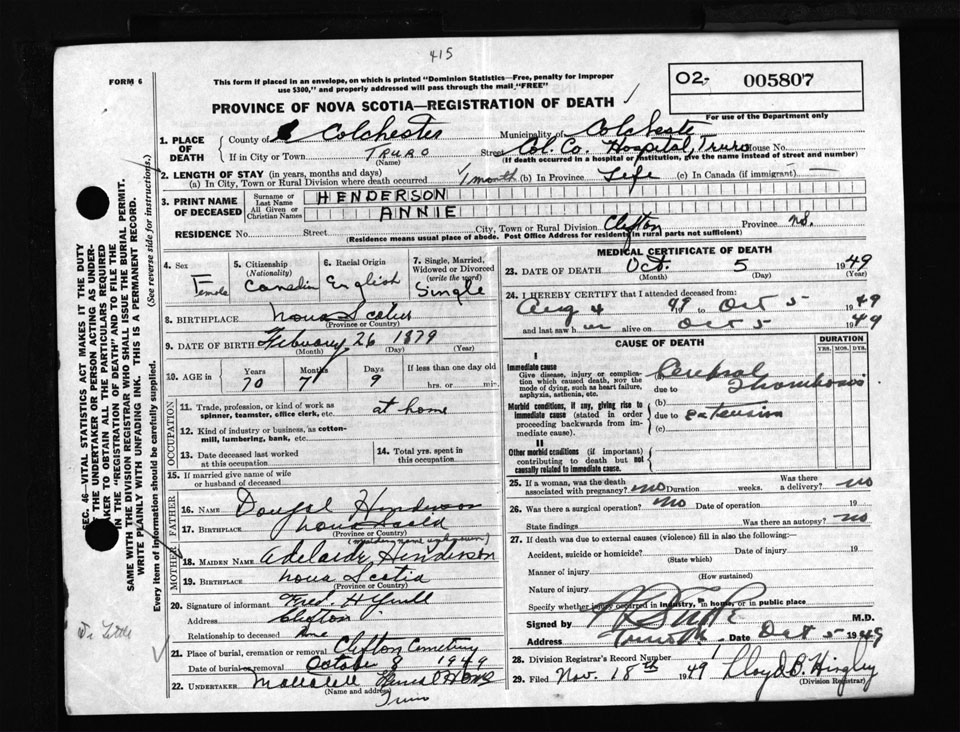 415
FORM 6
This form if placed in an envelope, on which is printed "Dominion Statistics—Free, penalty for improper
use $300," and properly addressed will pass through the mail "FREE"
02- 005807
For use of the Department only
PROVINCE OF NOVA SCOTIA—REGISTRATION OF DEATH
1. PLACE OF DEATH
County of Colchester Municipality of Colcheste
If in City or Town TRURO (Name) Street Col. Co. Hospital, Truro House No.
(If death occurred in a hospital or institution, give the name instead of street and number)
2. LENGTH OF STAY (in years, months and days)
(a) In City, Town or Rural Division where death occurred 1 month (b) In Province Life (c) In Canada (if immigrant)
3. PRINT NAME OF DECEASED
Surname or Last Name HENDERSON
All Given or Christian Names ANNIE
RESIDENCE No. Street City, Town or Rural Division Clifton Province N.S.
(Residence means usual place of abode. Post Office Address for residents in rural parts not sufficient)
4. Sex Female
5. Citizenship (Nationality) Canadin
6. Racial Origin English
7. Single, Married, Widowed or Divorced (write the word) Single
8. BIRTHPLACE Nova Scotia
(Province or Country)
9. DATE OF BIRTH February 26 1879
(Month) (Day) (Year)
10. AGE in Years 70 Months 7 Days 9 If less than one day
hrs. or min.
OCCUPATION
11. Trade, profession, or kind of work as spinner, teamster, office clerk, etc. at home
12. Kind of industry or business, as cotton-mill, lumbering, bank, etc.
13. Date deceased last worked at this occupation
14. Total yrs. spent in this occupation
15. If married give name of wife or husband of deceased
FATHER
16. Name Dougal Henderson
17. Birthplace Nova Scotia
(Province or Country)
MOTHER
(maiden name unknown)
18. MAIDEN NAME Adelaide Henderson
19. BIRTHPLACE Nova Scotia
(Province or Country)
20. Signature of informant Fred.
Address Clifton
Relationship to deceased
21. Place of burial, cremation or removal Clifton Cemetery
Date of burial or removal October 8 1949
22. UNDERTAKER Funeral Home
(Name and address)
Truro
MEDICAL CERTIFICATE OF DEATH
23. DATE OF DEATH Oct. 5 1949
(Month) (Day) (Year)
24. I HEREBY CERTIFY that I attended deceased from:
Aug 4 49 to Oct 5 1949
and last saw h er alive on Oct 5 1949
CAUSE OF DEATH
DURATION
YRS. MOS. DYS.
I
Immediate cause
Give disease, injury or complication which caused death, NOT the mode of dying, such as heart failure, asphyxia, asthenia, etc.
(a) Cerebral Thrombosis
due to
Morbid conditions, if any, giving rise to immediate cause (stated in order proceeding backwards from immediate cause).
(b)
due to extension
(c)
II
Other morbid conditions (if important) contributing to death but not causally related to immediate cause.
25. If a woman, was the death associated with pregnancy? no Duration weeks. Was there a delivery? no
26. Was there a surgical operation? no Date of operation 19
State findings Was there an autopsy? no
27. If death was due to external causes (violence) fill in also the following:—
Accident, suicide or homicide? Date of injury 19
(State which)
Manner of injury
(How sustained)
Nature of injury
Specify whether injury occurred in industry, in home, or in public place
Signed by M.D.
Address Truro Date Oct 5 1949
28. Division Registrar's Record Number
29. Filed Nov. 18th 1949 Lloyd B. Hingley
(Division Registrar)
SEC. 46—VITAL STATISTICS ACT MAKES IT THE DUTY
OF THE UNDERTAKER OR PERSON ACTING AS UNDER-
TAKER TO OBTAIN ALL THE PARTICULARS REQUIRED
IN THE "REGISTRATION OF DEATH" AND TO FILE THE
SAME WITH THE DIVISION REGISTRAR WHO SHALL ISSUE THE BURIAL PERMIT.
WRITE PLAINLY WITH UNFADING INK. THIS IS A PERMANENT RECORD.
Every item of information should be carefully supplied. (See reverse side for instructions.)